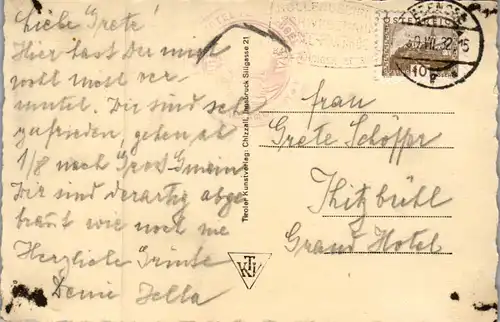 Liebe Grete!
Hier hast Du mich
wohl nicht ver
mutet. Wir sind sehr
zufrieden, gehen ab
1/8 nach Gross-Gmain
Wir sind derartig abge
brannt wie noch nie
Herzliche Grüsse
Deine Jella
Tiroler Kunstverlag: Chizzali, Innsbruck Sillgasse 21
KTI
ÖSTERREICH
10
30.VII.32.15
Frau
Grete Schöffr
Kitzbühl
Grand Hotel